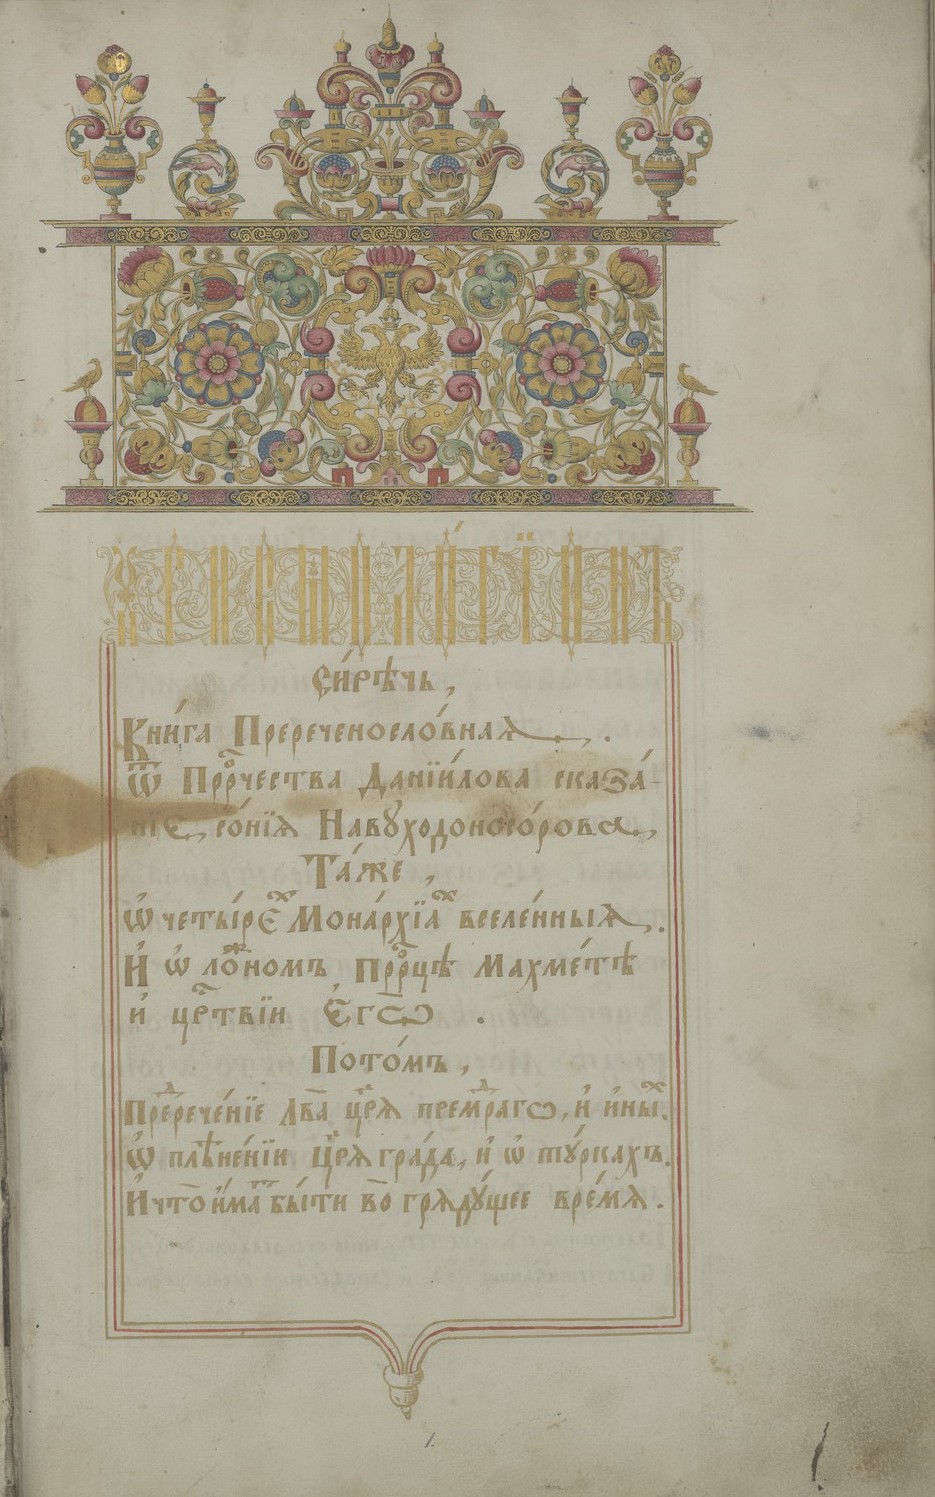 Хрисмологіонъ
Си́рѣчь,
Кни́га Пререченосло́вная.
Ѿ Прⷪ҇ро́чества Данїи́лова сказа́-
нїе, со́нїя Навуходоносо́рова,
Та́же,
Ѡ четы́реⷯ Мона́рхїаⷯ вселе́нныя.
И҆ ѡ ло́жномъ прⷪ҇ро́цѣ Махме́тѣ
и҆ црⷭ҇твїи Е҆гѡ̀.
Пото́мъ,
Прⷣерече́нїе Лва̀ цр҃я премⷣраго, и҆ и҆ны́ⷯ.
Ѡ плѣне́нїи Цр҃я гра́да, и҆ ѡ ту́ркахъ.
И҆ что̀ и҆́маⷮ бы́ти во гряду́щее вре́мя.
1.